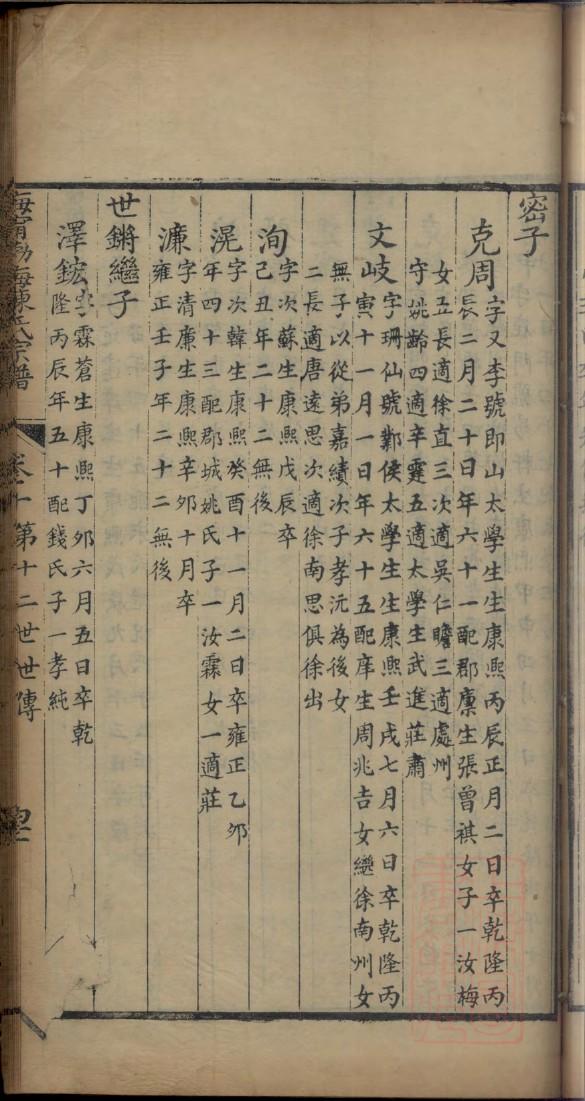 密子
克周
字又李號即山太學生生康熙丙辰正月二日卒乾隆丙
辰二月二十日年六十一配郡廩生張曾祺女子一汝梅
女五長適徐直三次適吳仁瞻三適處州
守姚齡四適辛霆五適太學生武進莊肅
文岐
字珊仙號鄴侯太學生生康熙壬戌七月六日卒乾隆丙
寅十一月一日年六十五配庠生周兆吉女繼徐南州女
無子以從弟嘉績次子孝沅為後女
二長適唐遠思次適徐南思俱徐出
洵
字次蘇生康熙戊辰卒
己丑年二十二無後
滉
字次韓生康熙癸酉十一月二日卒雍正乙卯
年四十三配郡城姚氏子一汝霖女一適莊
濂
字清廉生康熙辛卯十月卒
雍正壬子年二十二無後
世鏘繼子
澤鋐
字霖蒼生康熙丁卯六月五日卒乾
隆丙辰年五十配錢氏子一孝純
海甯渤海陳氏宗譜
卷十 第十二世世傳